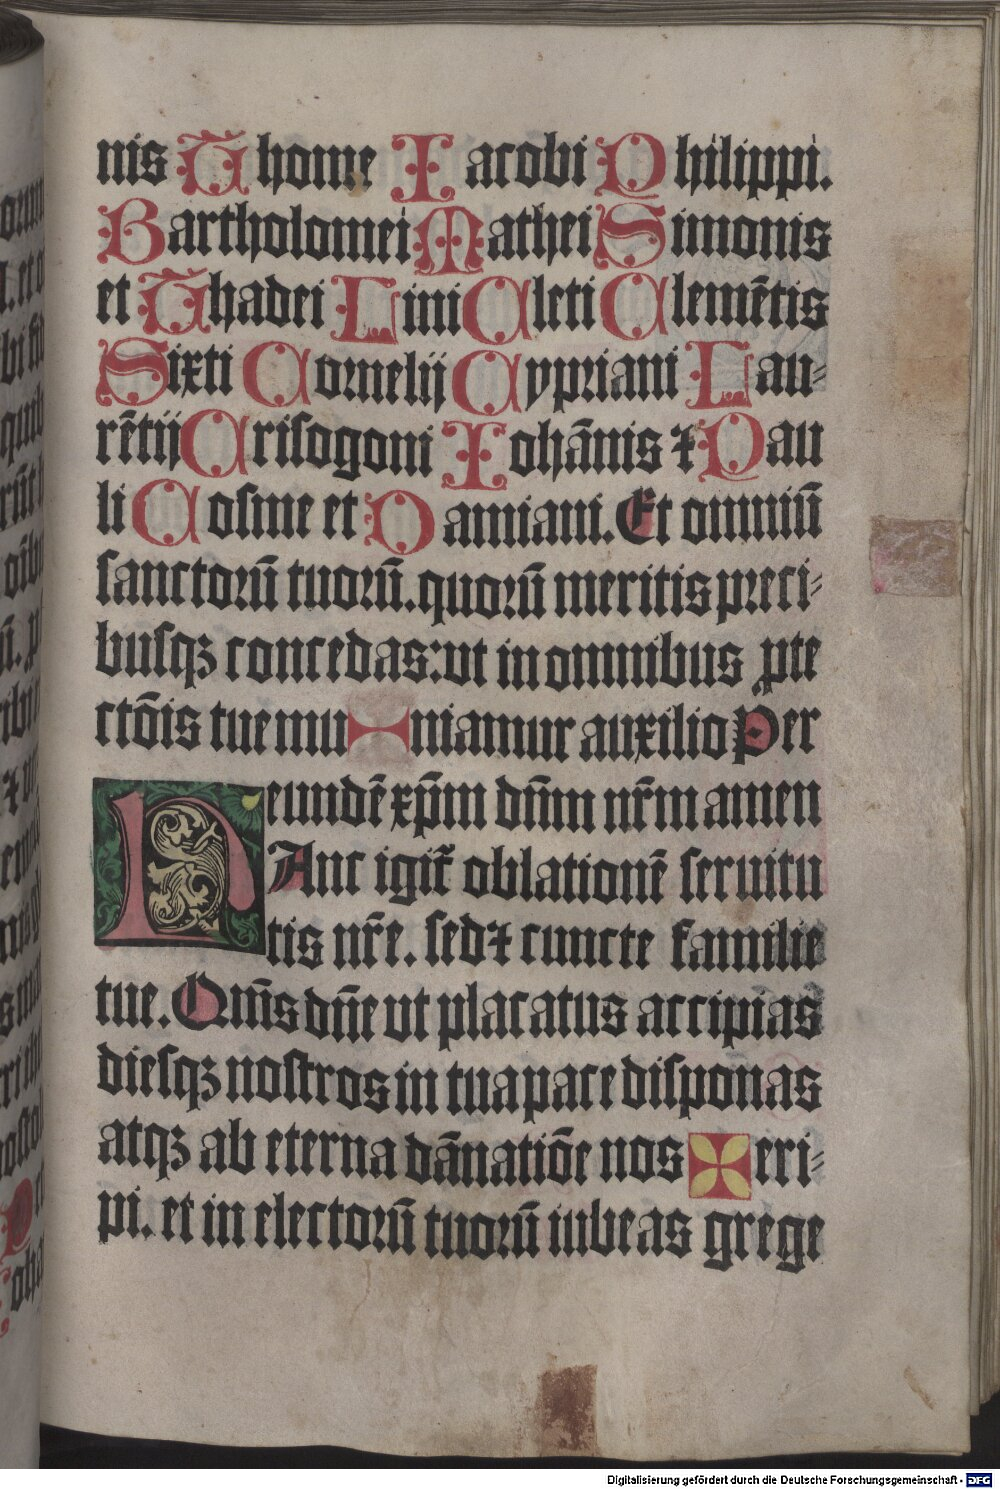 nis Thome Iacobi Philippi.
Bartholomei Mathei Simonis
et Thadei Lini Cleti Clemētis
Sixti Cornelij Cypriani Lau-
rētij Crisogoni Iohānis ⁊ Pau
li Cosme et Damiani. Et omniū
sanctorū tuorū. quorū meritis preci-
busqꝫ concedas: ut in omnibus ꝓte
ctōis tue muniamur auxilio Per
eundē xp̄m dn̄m nr̄m amen
HAnc igit̄ oblationē seruitu
tis nr̄e. sed ⁊ cuncte familie
tue. Qm̄s dn̄e ut placatus accipias
diesqꝫ nostros in tua pace disponas
atqꝫ ab eterna dānatiōe nos eri-
pi. et in electorū tuorū iubeas grege
Digitalisierung gefördert durch die Deutsche Forschungsgemeinschaft - DFG